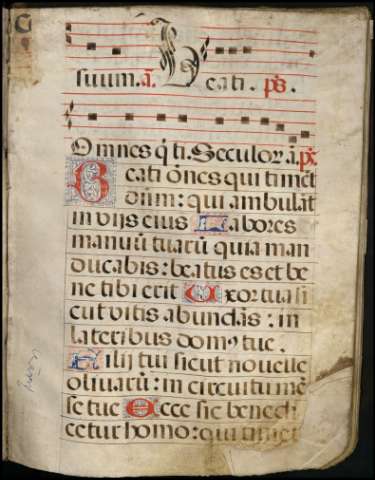 suum. a͞. Beati. ps.
Omnes q̄ ti. Seculor. a. px
Beati oēs qui timēt
dnm̄: qui ambulāt
in vijs eius Labores
manuū tuarū quia man
ducabis: beatus es et be
ne tibi erit Uxor tua si
cut vitis abundās: in
lateribus domꝰ tue.
Filij tui sicut nouelle
oliuarū: in circuitu mē
se tue Ecce sic benedi
cetur homo: qui timet